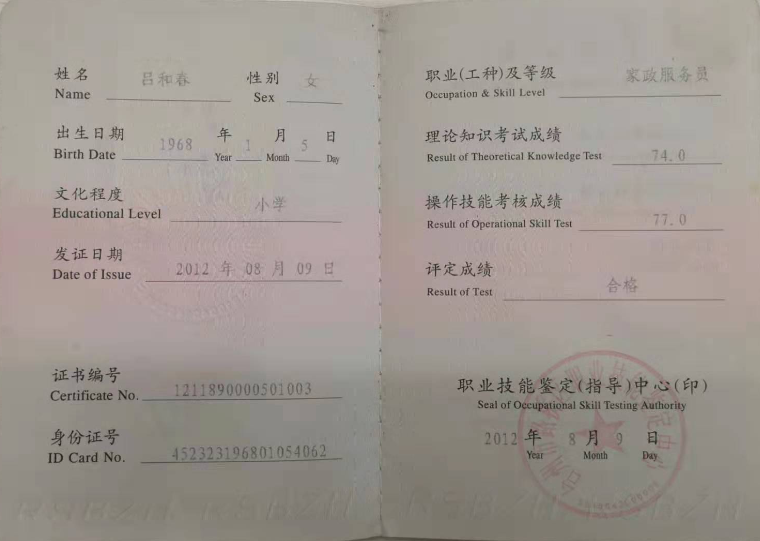 姓名 吕和春 性别 女
Name Sex
出生日期 1968 年 1 月 5 日
Birth Date Year Month Day
文化程度 小学
Educational Level
发证日期 2012 年 08 月 09 日
Date of Issue
证书编号 1211890000501003
Certificate No.
身份证号 452323196801054062
ID Card No.
职业(工种)及等级 家政服务员
Occupation & Skill Level
理论知识考试成绩 74.0
Result of Theoretical Knowledge Test
操作技能考核成绩 77.0
Result of Operational Skill Test
评定成绩 合格
Result of Test
职业技能鉴定(指导)中心(印)
Seal of Occupational Skill Testing Authority
2012 年 8 月 9 日
Year Month Day